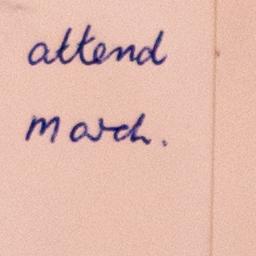 attend
March.